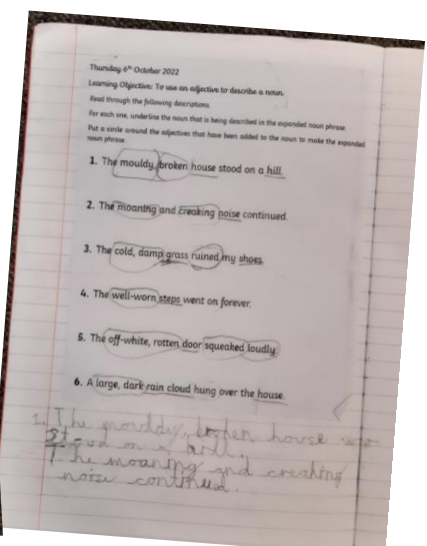 Thursday 6th October 2022
Learning Objective: To use an adjective to describe a noun.
Read through the following descriptions.
For each one, underline the noun that is being described in the expanded noun phrase
Put a circle around the adjectives that have been added to the noun to make the expanded
noun phrase.
1. The mouldy, broken house stood on a hill.
2. The moaning and creaking noise continued.
3. The cold, damp grass ruined my shoes.
4. The well-worn steps went on forever.
5. The off-white, rotten door squeaked loudly.
6. A large, dark rain cloud hung over the house.
1. The mouldy, broken house
stood on a hill.
The moaning and creaking
noise continued.